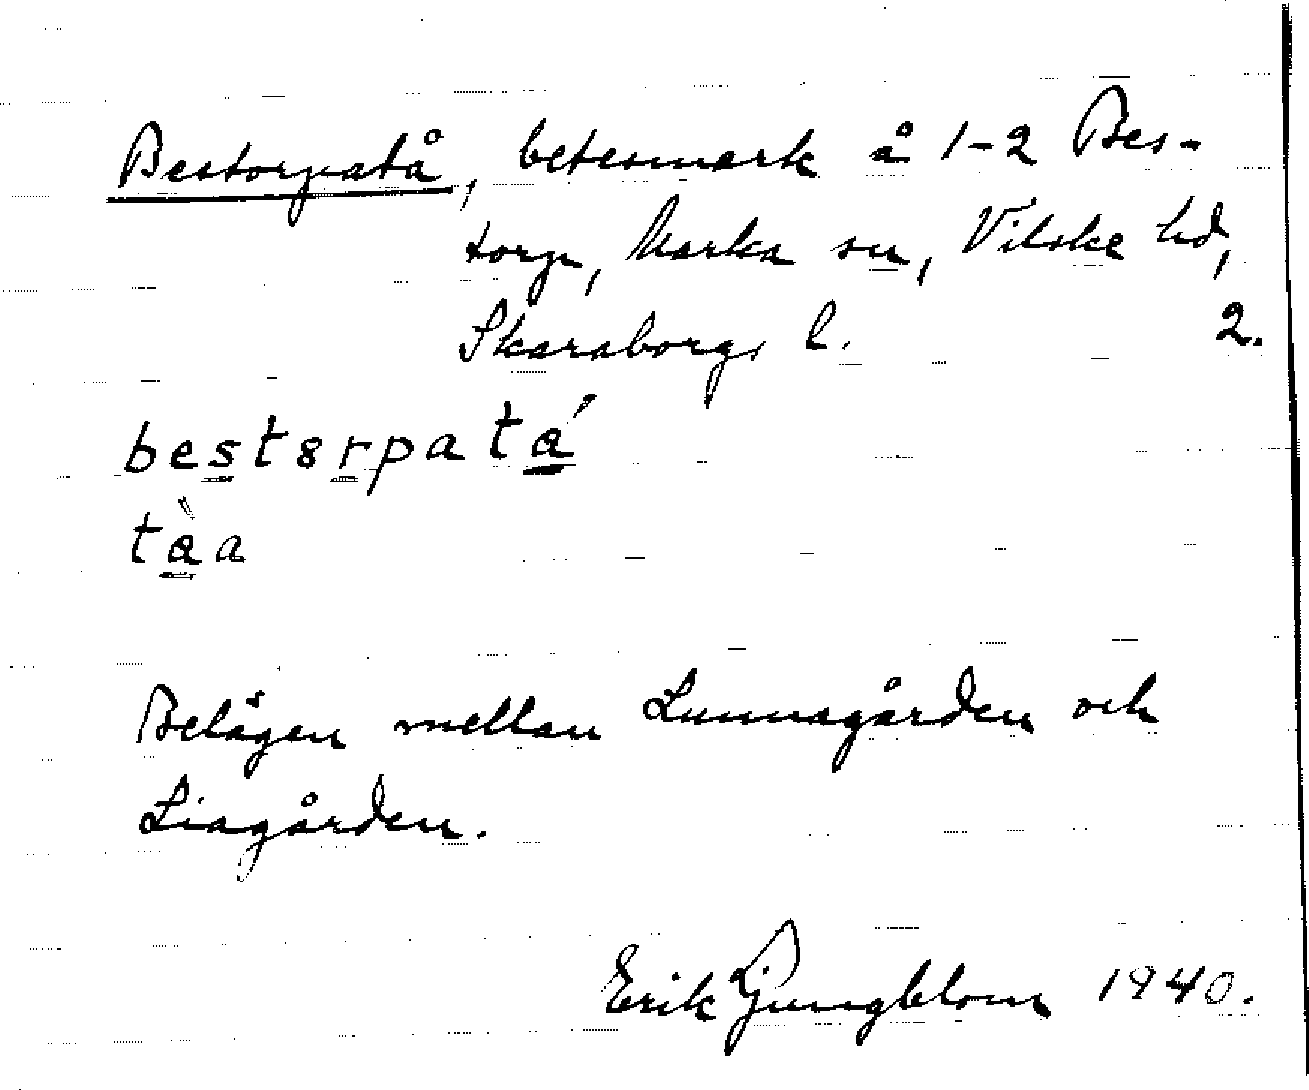 Bestorpatå, betesmark å 1-2 Bes-
torp, Marka sn, Vilske hd,
Skaraborgs l. 2.
bestɞrpatá
tàa
Belägen mellan Lunnagården och
Liagården.
Erik Ljungblom 1940.